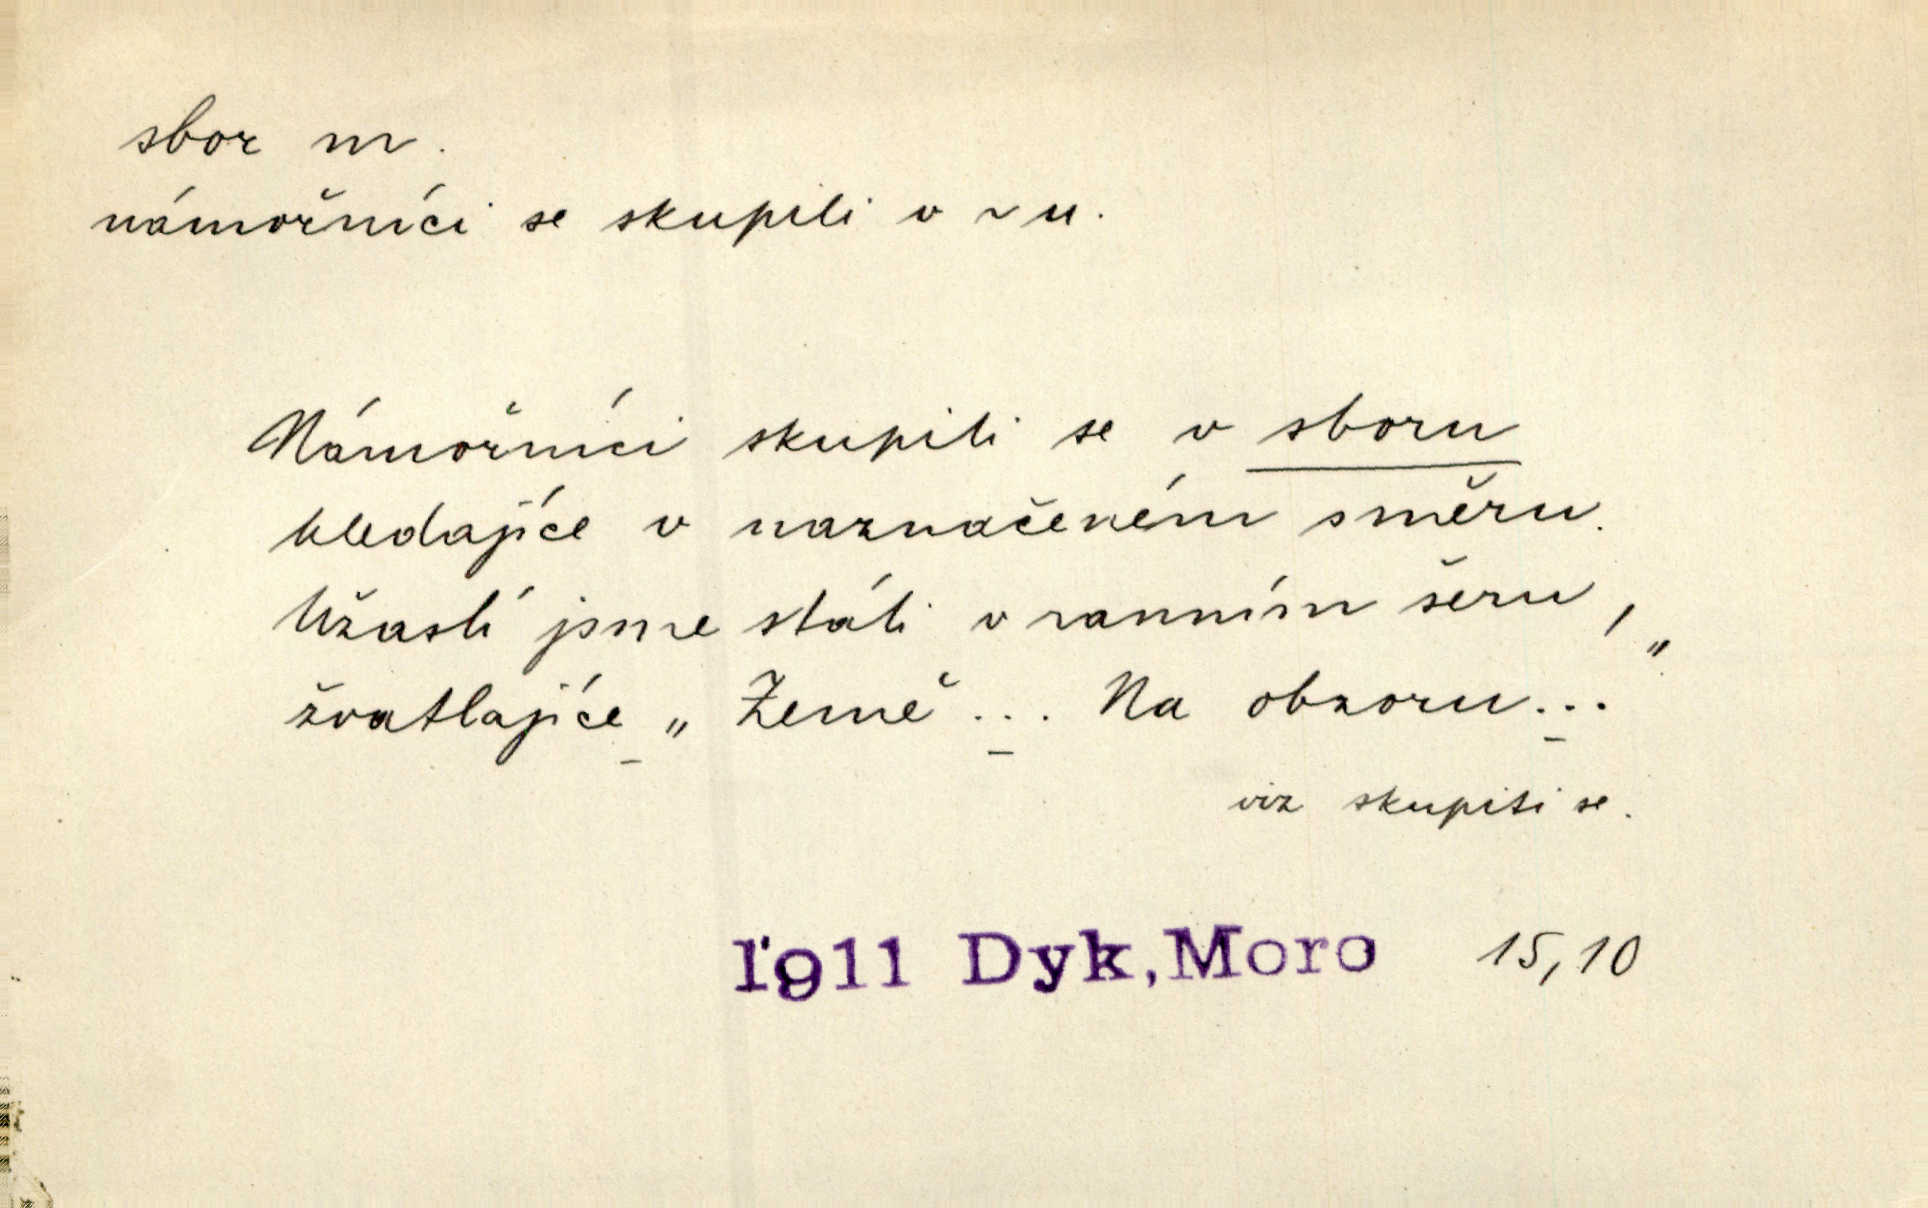 sbor m.
námořníci se skupili v ~u.
Námořníci skupili se v sboru
hledajíce v naznačeném směru.
Užaslí jsme stáli v ranním šeru,
žvatlajíce „Země... Na obzoru..."
viz skupiti se.
1911 Dyk, Moro 15,10